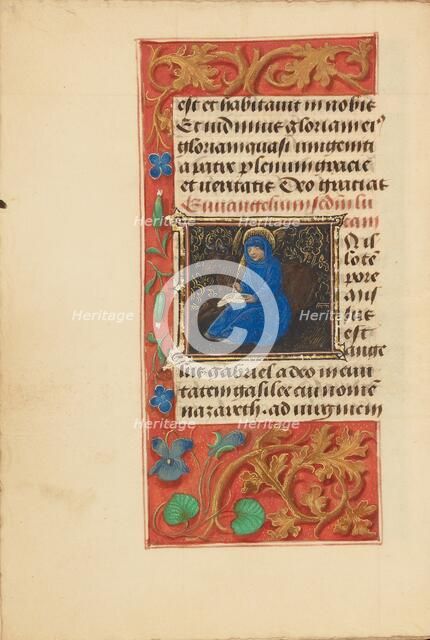 est et habitauit in nobis
Et uidimus gloriam ei9
gloriam quasi unigeniti
a patre plenum gracie
et ueritatis Deo gracias
Euuangelium sedm̄ lu
cam
N il
lo tē
pore
mis
sus
est
ange
lus gabriel a deo in ciui
tatem galilee cui nomē
nazareth. ad uirginem
Heritage
Heritage
Heritage
Heritage
Heritage
Heritage